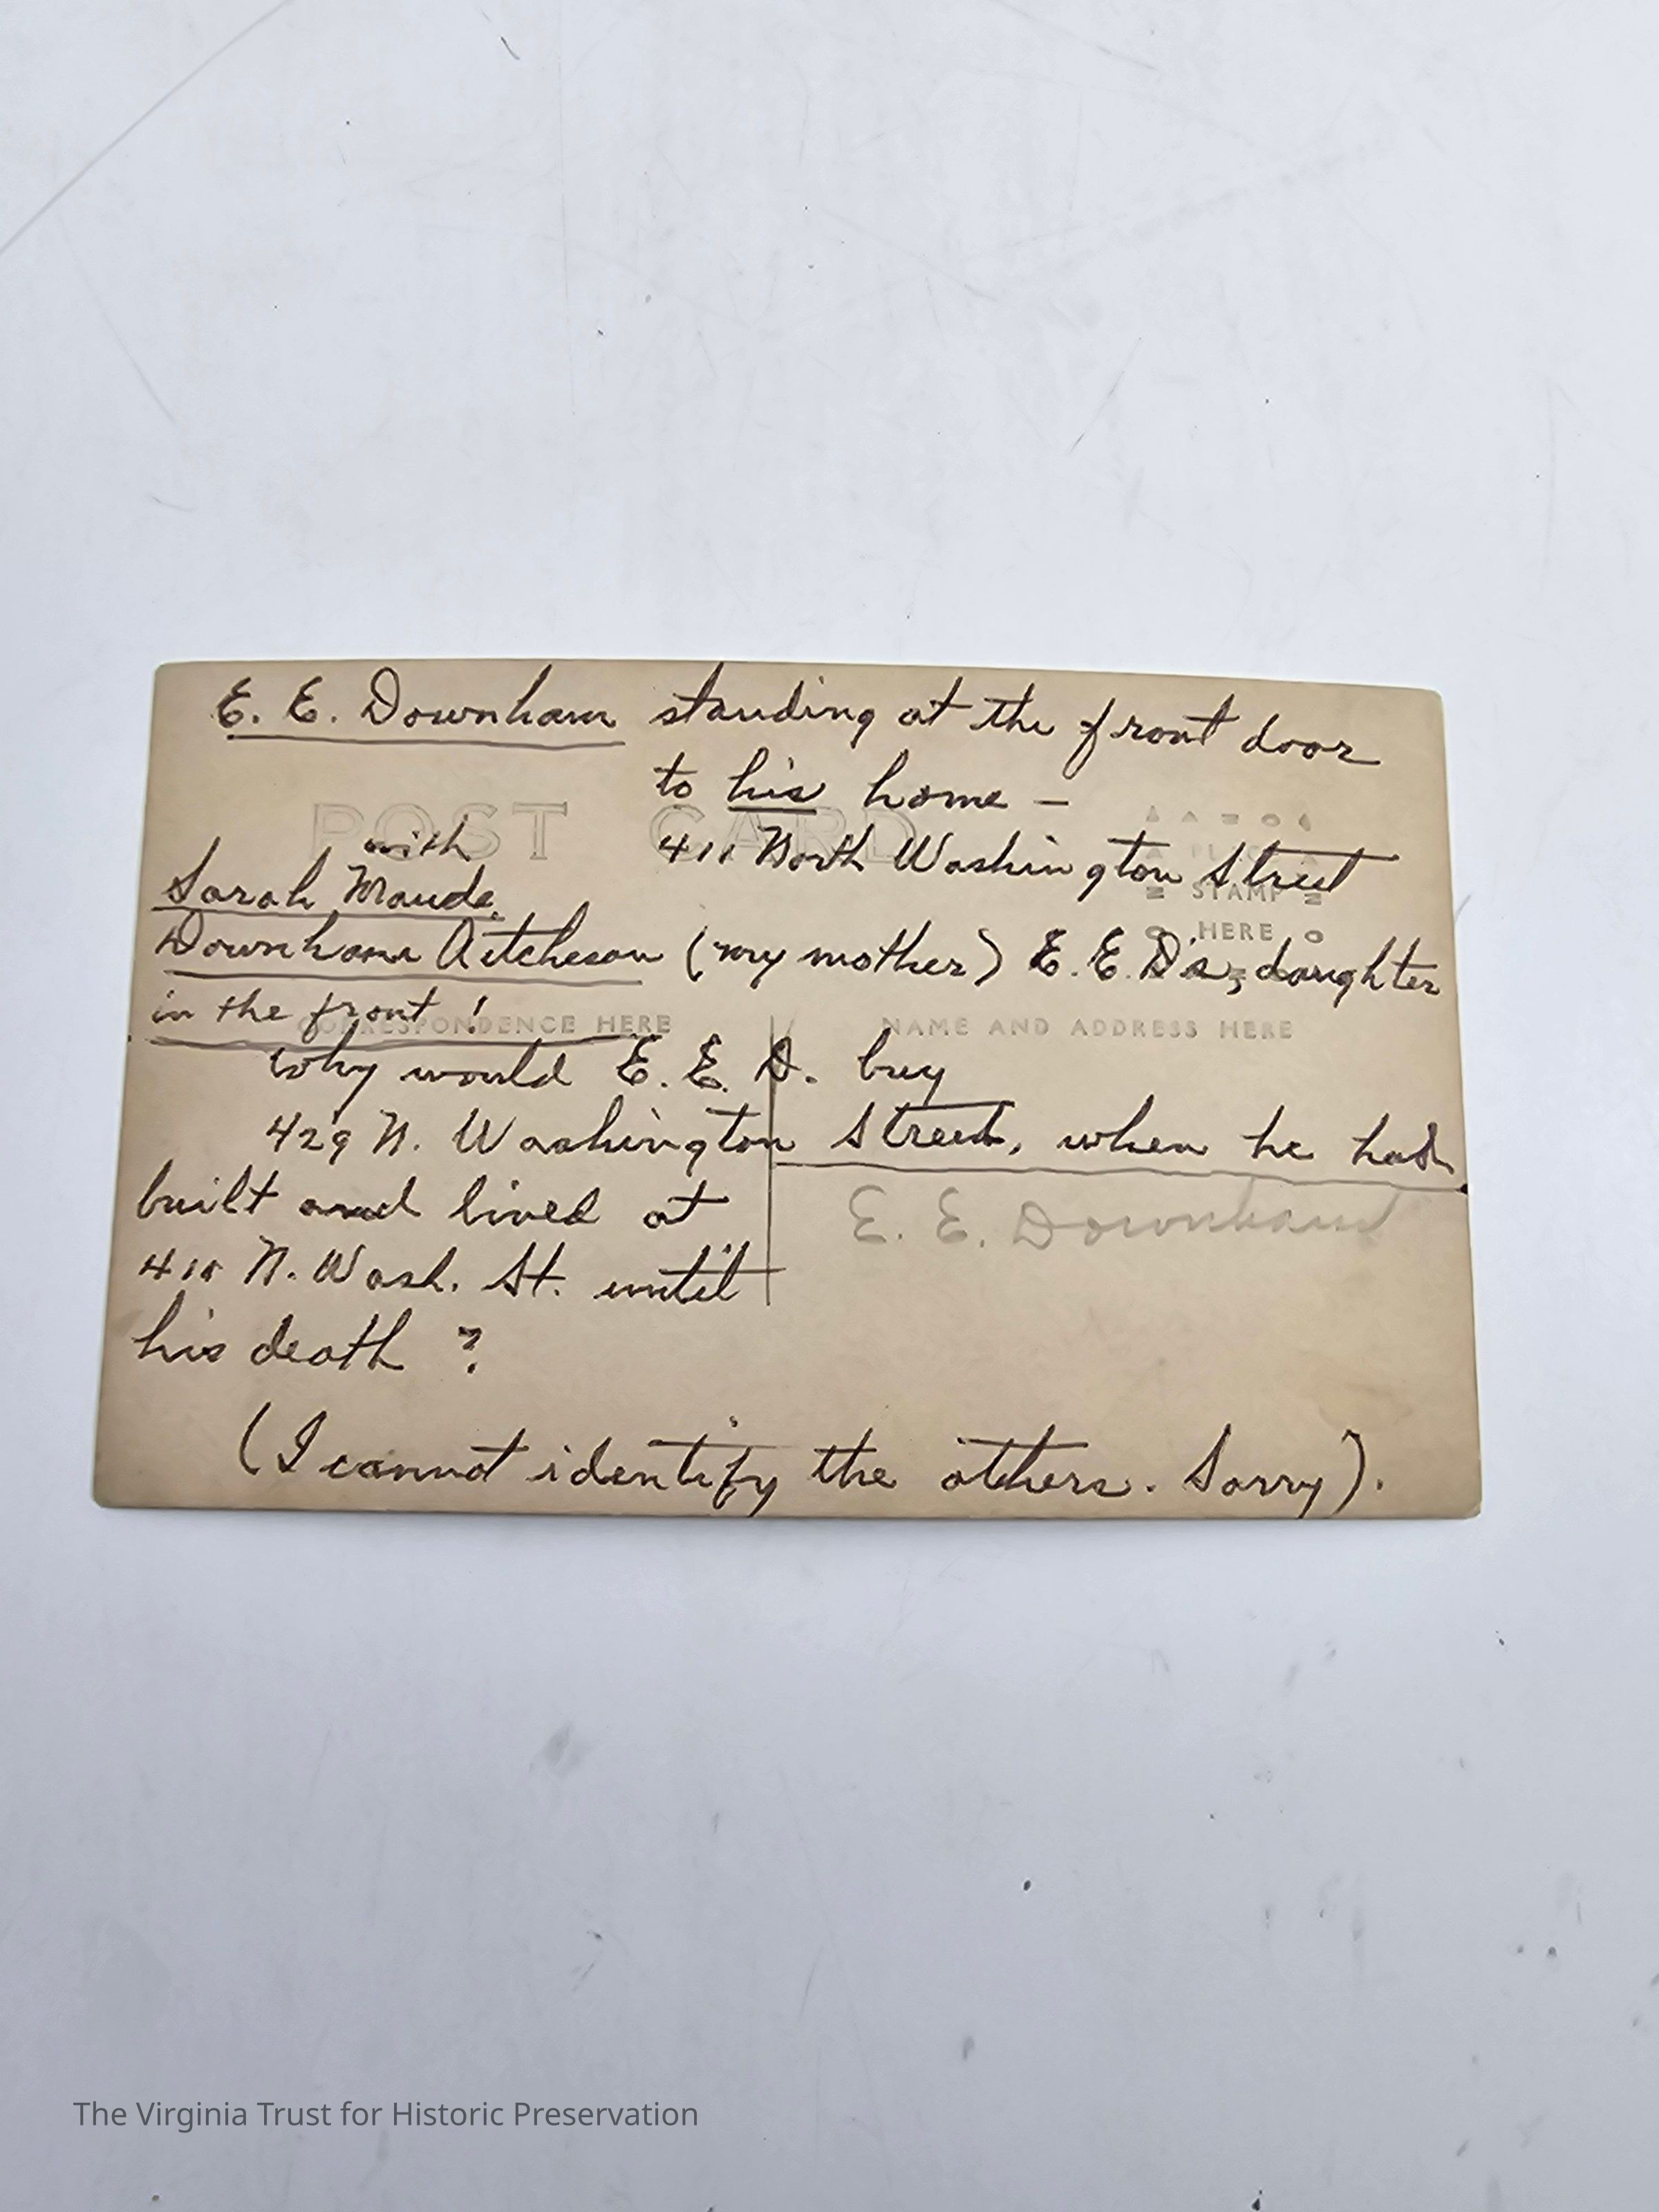 E. E. Downham standing at the front door
to his home –
POST CARD
with
411 North Washington Street
Sarah Maude
STAMP
HERE
Downham Aitcheson (my mother) E. E. D's, daughter
in the front!
CORRESPONDENCE HERE
NAME AND ADDRESS HERE
Why would E. E. D. buy
429 N. Washington Street, when he had
built and lived at
E. E. Downham
411 N. Wash. St. until
his death ?
(I cannot identify the others. Sorry).
The Virginia Trust for Historic Preservation